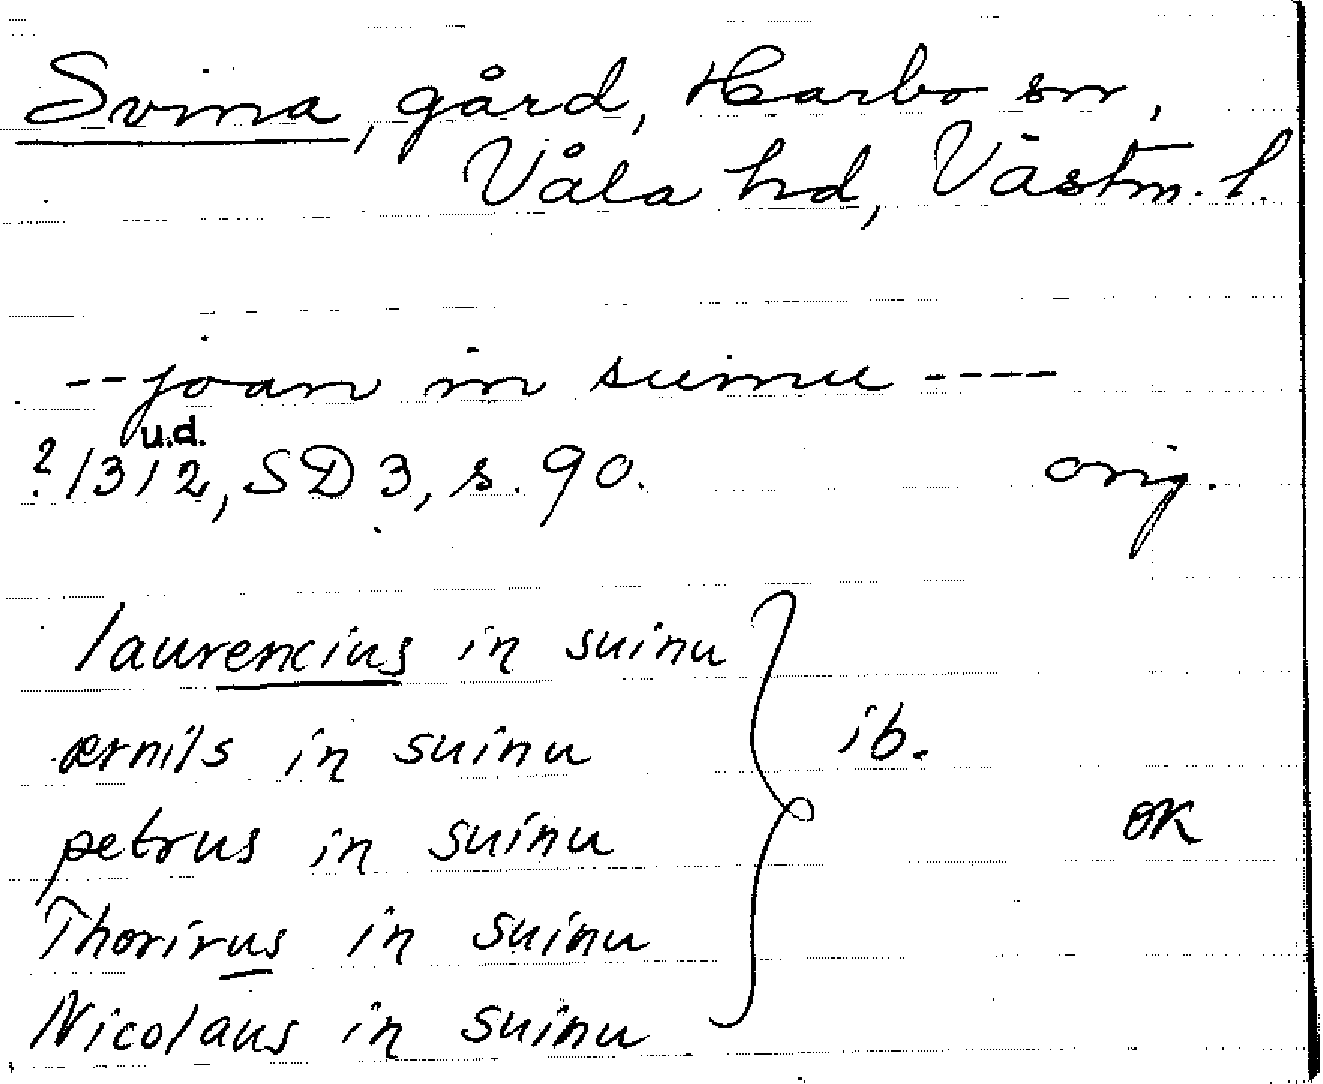 Svina, gård, Harbo sn,
Våla hd, Västm. l.
-- joan in suinu ----
u.d.
? 1312, SD 3, s. 90. orig.
laurencius in suinu
ærnils in suinu ib.
petrus in suinu OK
Thorirus in suinu
Nicolaus in suinu